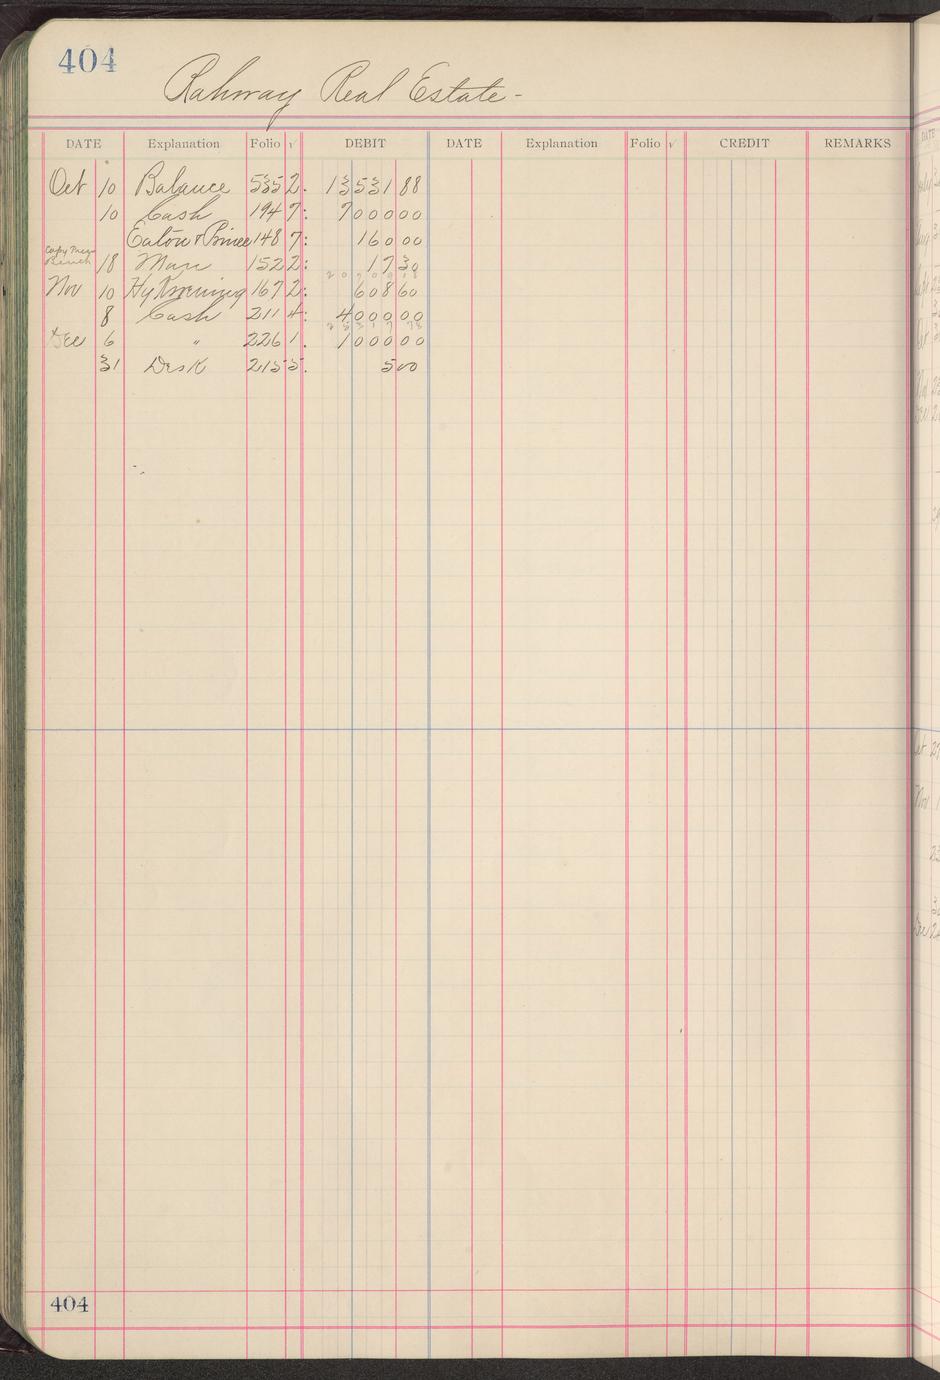 404
Rahway Real Estate -
DATE Explanation Folio √ DEBIT DATE Explanation Folio √ CREDIT REMARKS
Oct 10 Balance 535 2. 13531 88
10 Cash 194 7: 7000 00
Eaton & Prince 148 7: 160 00
18 Marx 152 2: 17 30
Nov 10 Hy 167 2: 608 60
8 Cash 211 4: 4000 00
Dec 6 " 226 1. 1000 00
31 Desk 215 5. 5 00
404